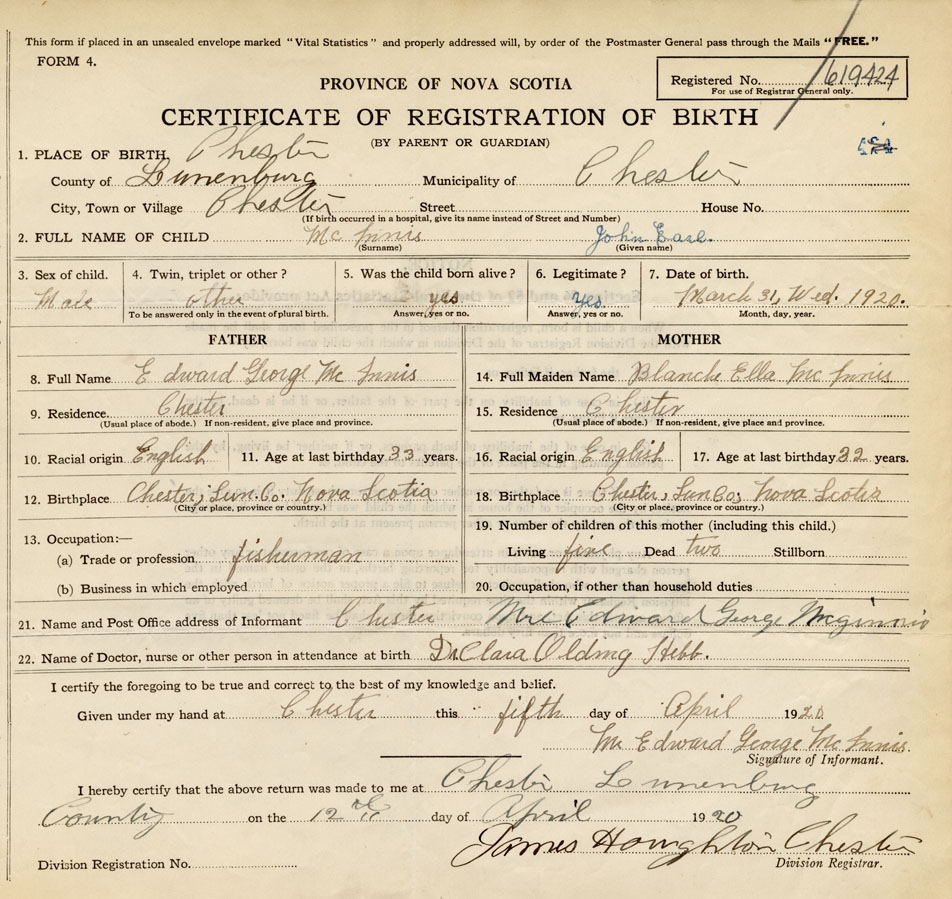 This form if placed in an unsealed envelope marked "Vital Statistics" and properly addressed will, by order of the Postmaster General pass through the Mails "FREE."
FORM 4.
Registered No. 619424
For use of Registrar General only.
PROVINCE OF NOVA SCOTIA
CERTIFICATE OF REGISTRATION OF BIRTH
(BY PARENT OR GUARDIAN)
1. PLACE OF BIRTH Chester
County of Lunenburg Municipality of Chester
City, Town or Village Chester Street House No.
(If birth occurred in a hospital, give its name instead of Street and Number)
2. FULL NAME OF CHILD Mc Innis John Earl.
(Surname) (Given name)
3. Sex of child. 4. Twin, triplet or other? 5. Was the child born alive? 6. Legitimate? 7. Date of birth.
Male other yes yes March 31, Wed. 1920.
To be answered only in the event of plural birth. Answer, yes or no. Answer, yes or no. Month, day, year.
FATHER MOTHER
8. Full Name Edward George Mc Innis 14. Full Maiden Name Blanche Ella Mc Innis
9. Residence. Chester 15. Residence Chester
(Usual place of abode.) If non-resident, give place and province. (Usual place of abode.) If non-resident, give place and province.
10. Racial origin English 11. Age at last birthday 33 years. 16. Racial origin English 17. Age at last birthday 32 years.
12. Birthplace Chester, Lun. Co. Nova Scotia 18. Birthplace Chester, Lun Co; Nova Scotia
(City or place, province or country.) (City or place, province or country.)
13. Occupation:— 19. Number of children of this mother (including this child.)
(a) Trade or profession fisherman Living five Dead two Stillborn
(b) Business in which employed 20. Occupation, if other than household duties
21. Name and Post Office address of Informant Chester Mrs Edward George Mcginnis
22. Name of Doctor, nurse or other person in attendance at birth Dr Clara Olding Hebb.
I certify the foregoing to be true and correct to the best of my knowledge and belief.
Given under my hand at Chester this fifth day of April 1920
Mr Edward George Mc Innis.
Signature of Informant.
I hereby certify that the above return was made to me at Chester Lunenburg
County on the 12th day of April 1920
James Houghton Chester
Division Registration No. Division Registrar.